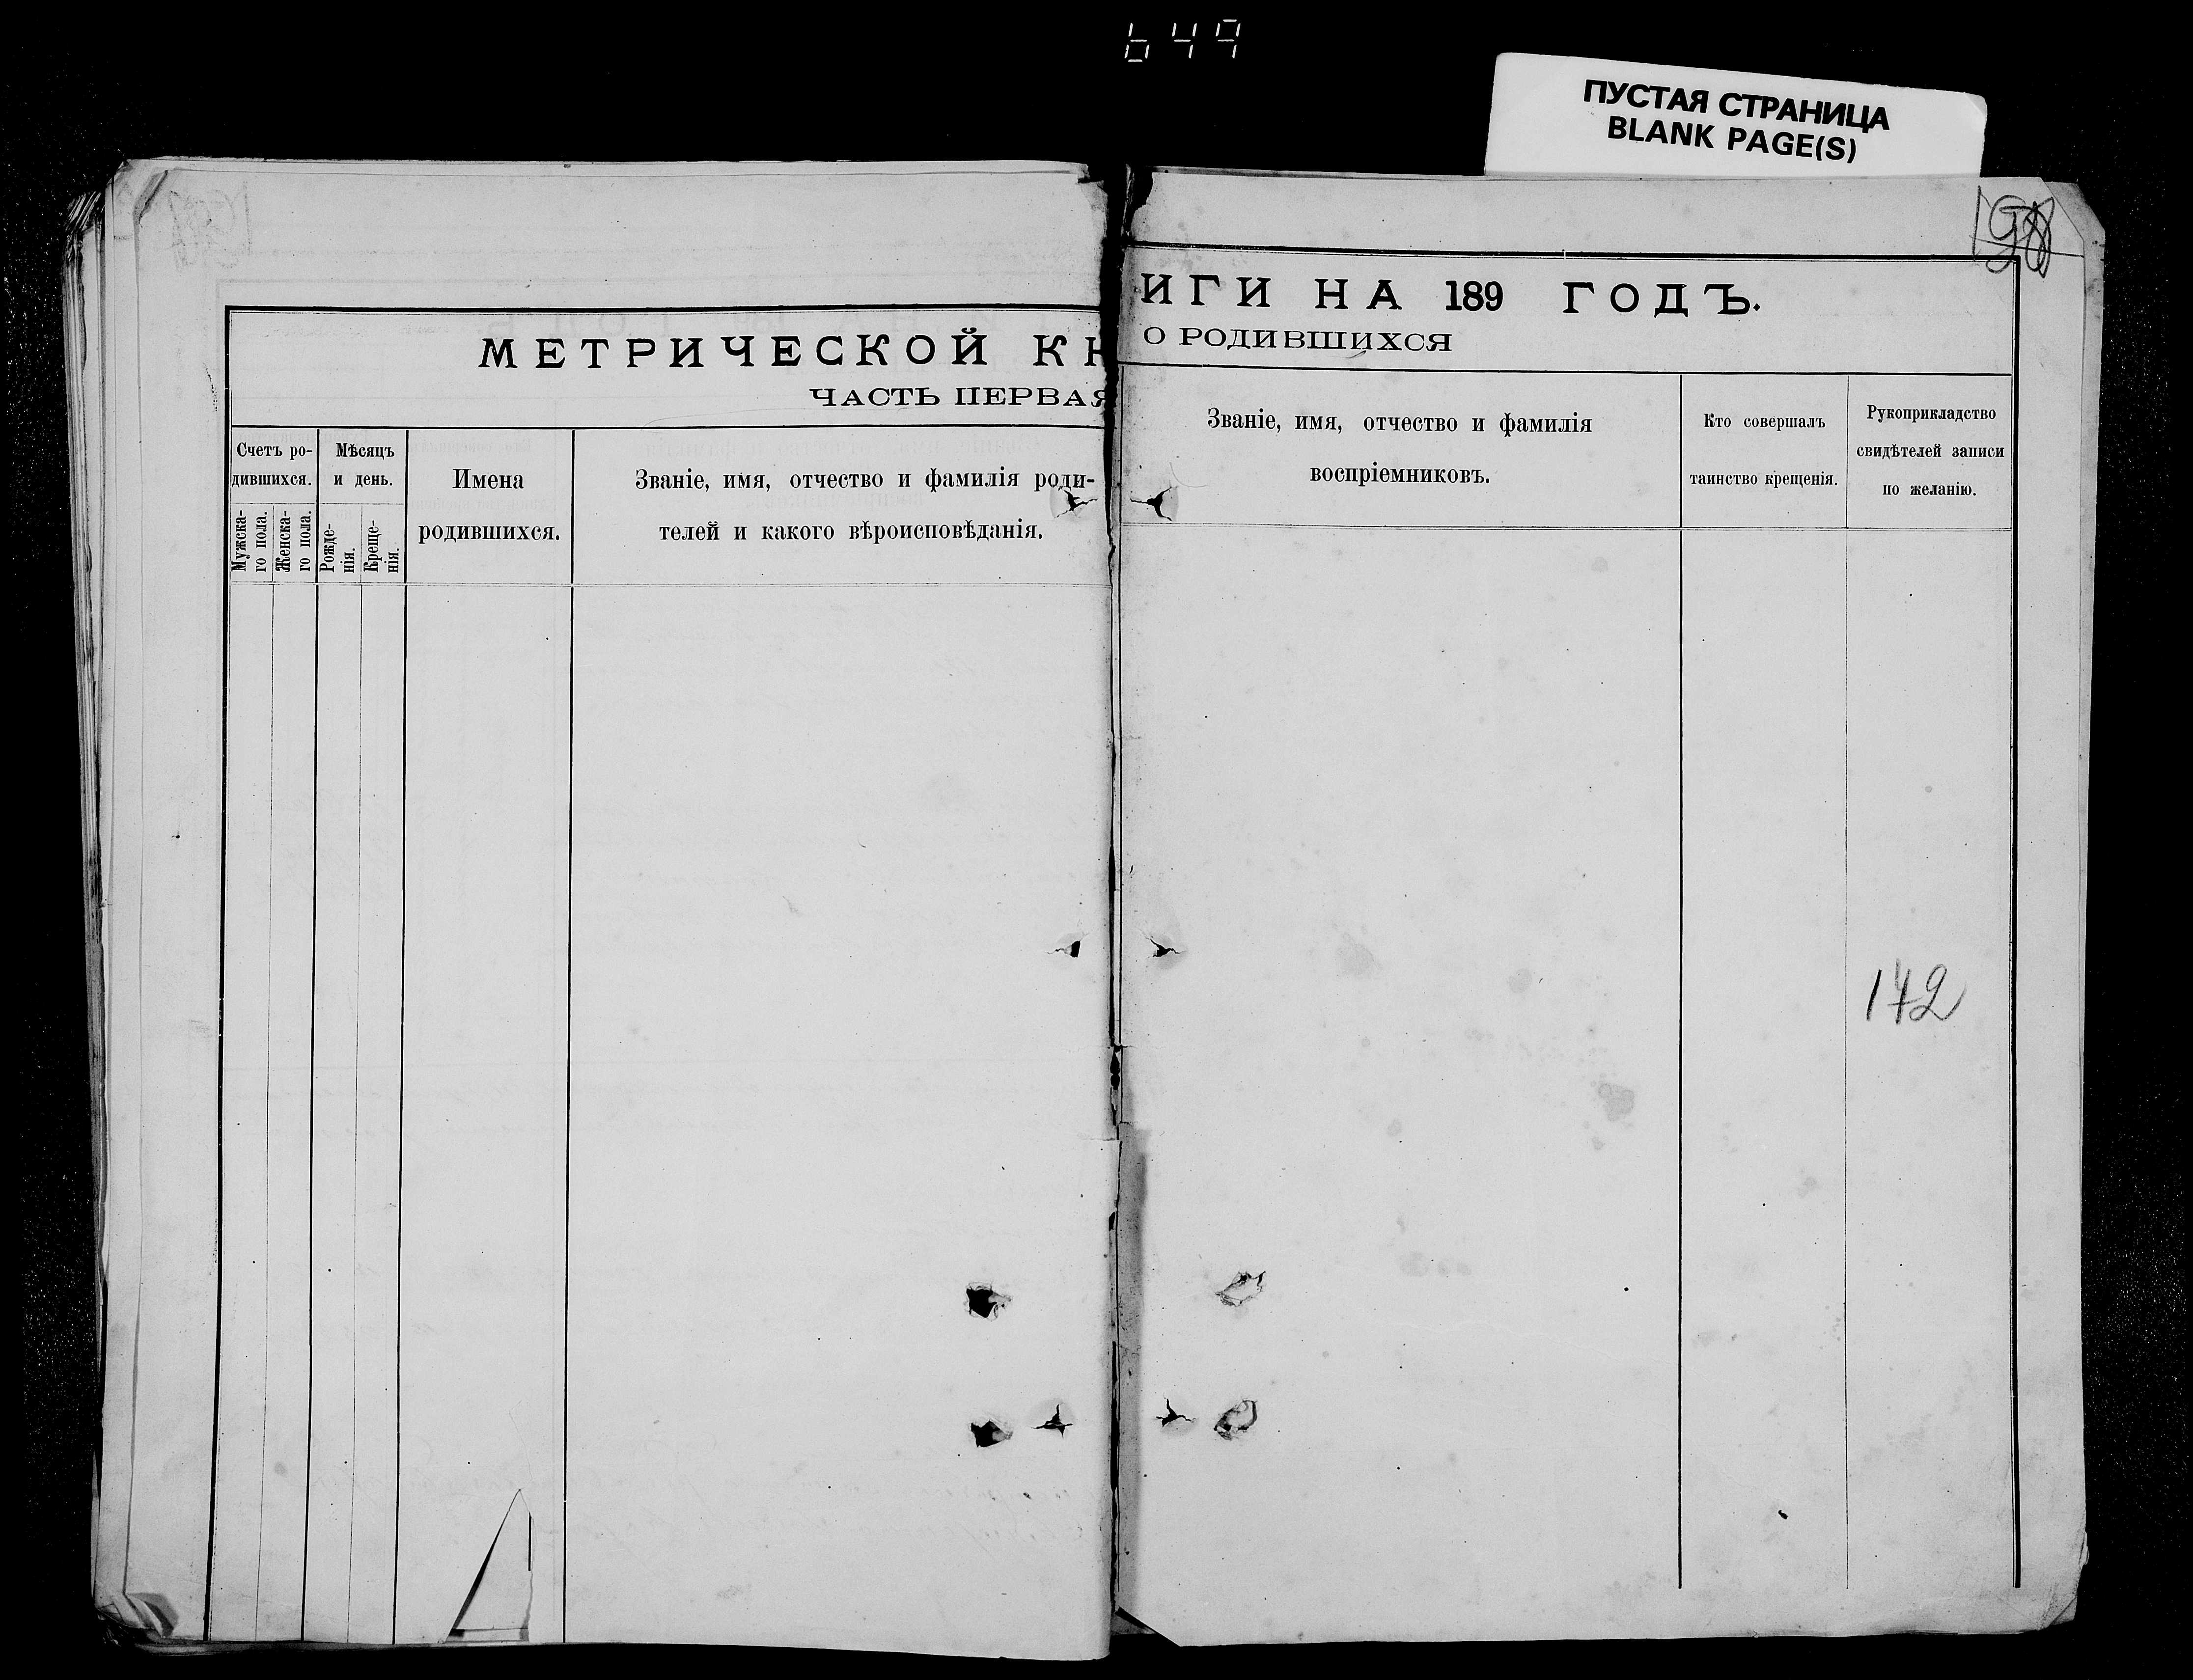 649
ПУСТАЯ СТРАНИЦА
BLANK PAGE(S)
МЕТРИЧЕСКОЙ КН
ЧАСТЬ ПЕРВАЯ
Счетъ ро-
дившихся.
Мужска-
го пола.
Женска-
го пола.
Мѣсяцъ
и день.
Рожде-
нія.
Креще-
нія.
Имена
родившихся.
Званіе, имя, отчество и фамилія роди-
телей и какого вѣроисповѣданія.
ИГИ НА 189 ГОДЪ.
О РОДИВШИХСЯ
Званіе, имя, отчество и фамилія
воспріемниковъ.
Кто совершалъ
таинство крещенія.
Рукоприкладство
свидѣтелей записи
по желанію.
142